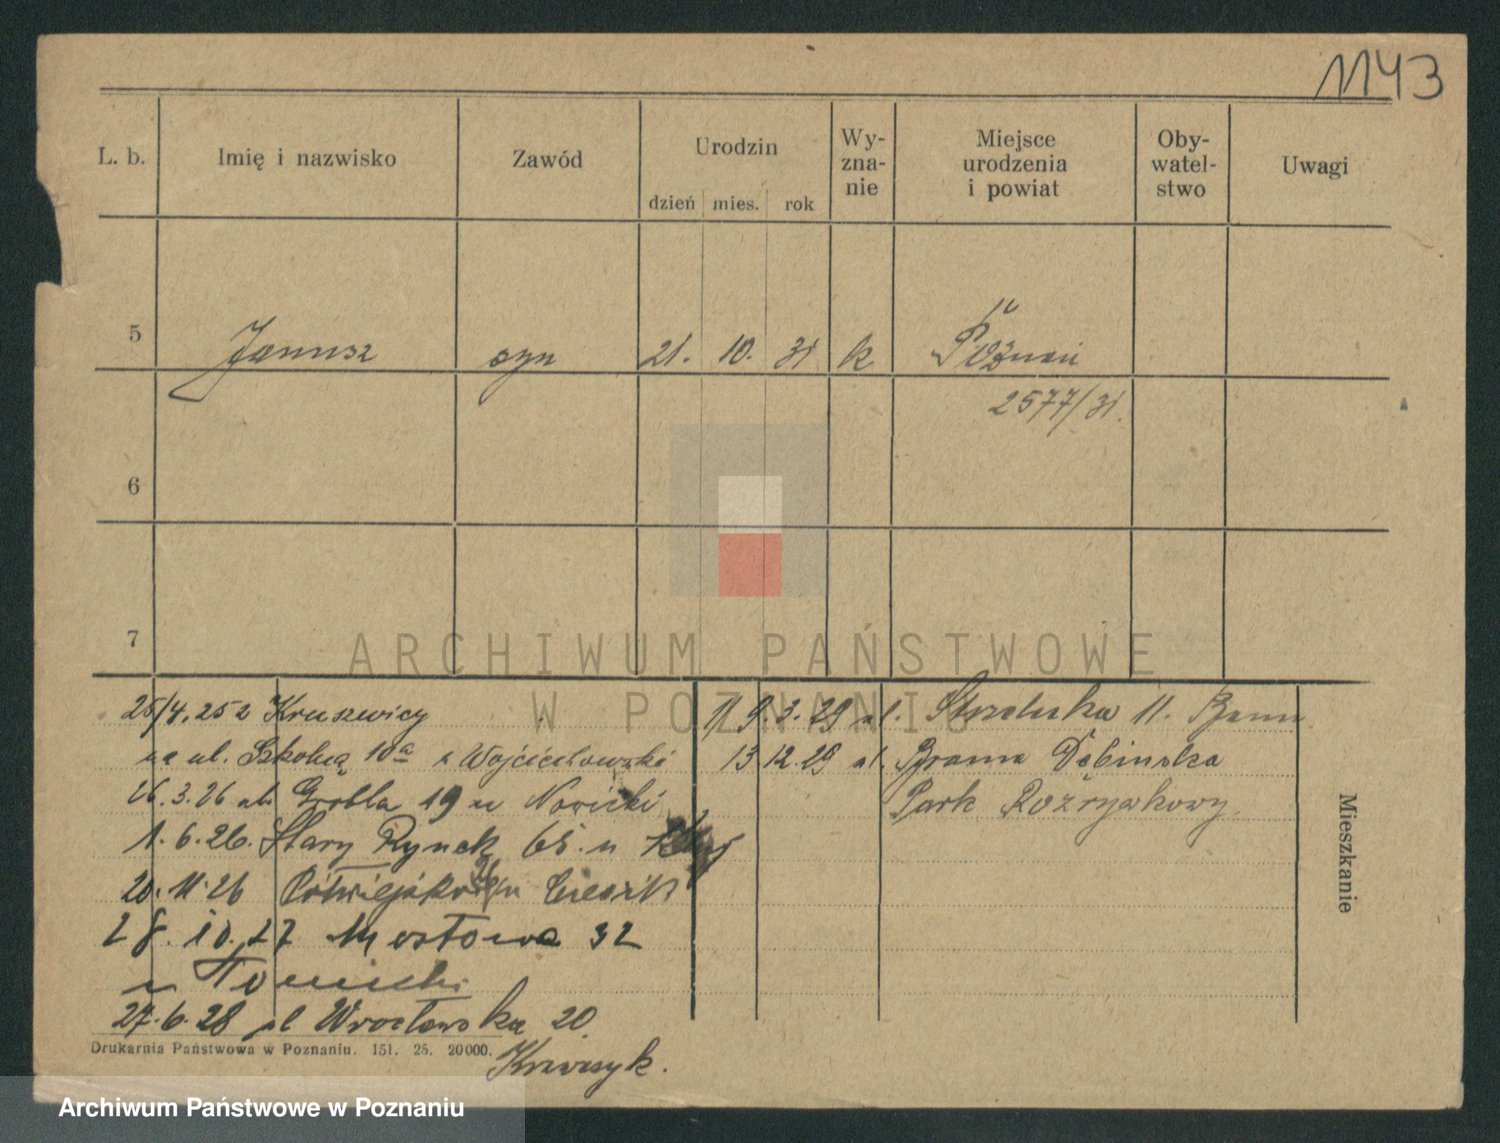 1143
L. b. Imię i nazwisko Zawód Urodzin Wy-zna-nie Miejsce urodzenia i powiat Oby-watel-stwo Uwagi
dzień mies. rok
5 Janusz syn 21. 10. 31 k Poznań
2577/31.
6
7
ARCHIWUM PAŃSTWOWE
W POZNANIU
25/4.25 z Kruszwicy
na ul. Szkolną 10a u Wojciechowski
26.3.26 ul. Grobla 19 u Nowicki
1.6.26. Stary Rynek 65. u
20.11.26 Półwiejska u
28.10.27 Mostowa 32
u Tomicki
27.6.28 ul Wrocławska 20
Krawczyk.
9.3.29 ul. Strzelecka 11.
13 12.29 ul. Brama Dębińska
Park Rozrywkowy
Mieszkanie
Drukarnia Państwowa w Poznaniu. 151. 25. 20000.
Archiwum Państwowe w Poznaniu